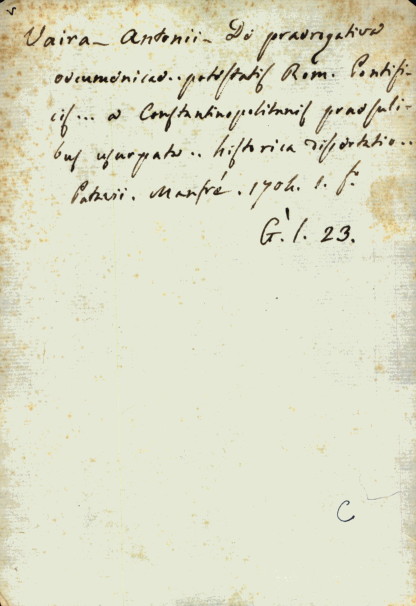 Vaira - Antonii - De praerogativa
oecumenicae.. potestatis Rom. Pontifi-
cis... a Constantinopolitanis praesuli-
bus usurpata.. historica dissertatio..
Patavii. Manfré. 1704. 1. f.
G. 1. 23.
C